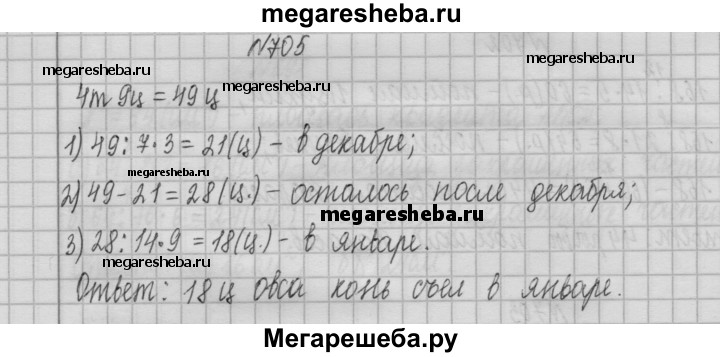 megaresheba.ru
№705
megaresheba.ru
megaresheba.ru
4т 9ц = 49 ц
1) 49 : 7 · 3 = 21 (ц) - в декабре;
2) 49 - 21 = 28 (ц.) - осталось после декабря;
megaresheba.ru
3) 28 : 14 · 9 = 18 (ц.) - в январе.
megaresheba.ru
Ответ: 18 ц овса конь съел в январе.
Мегарешеба.ру